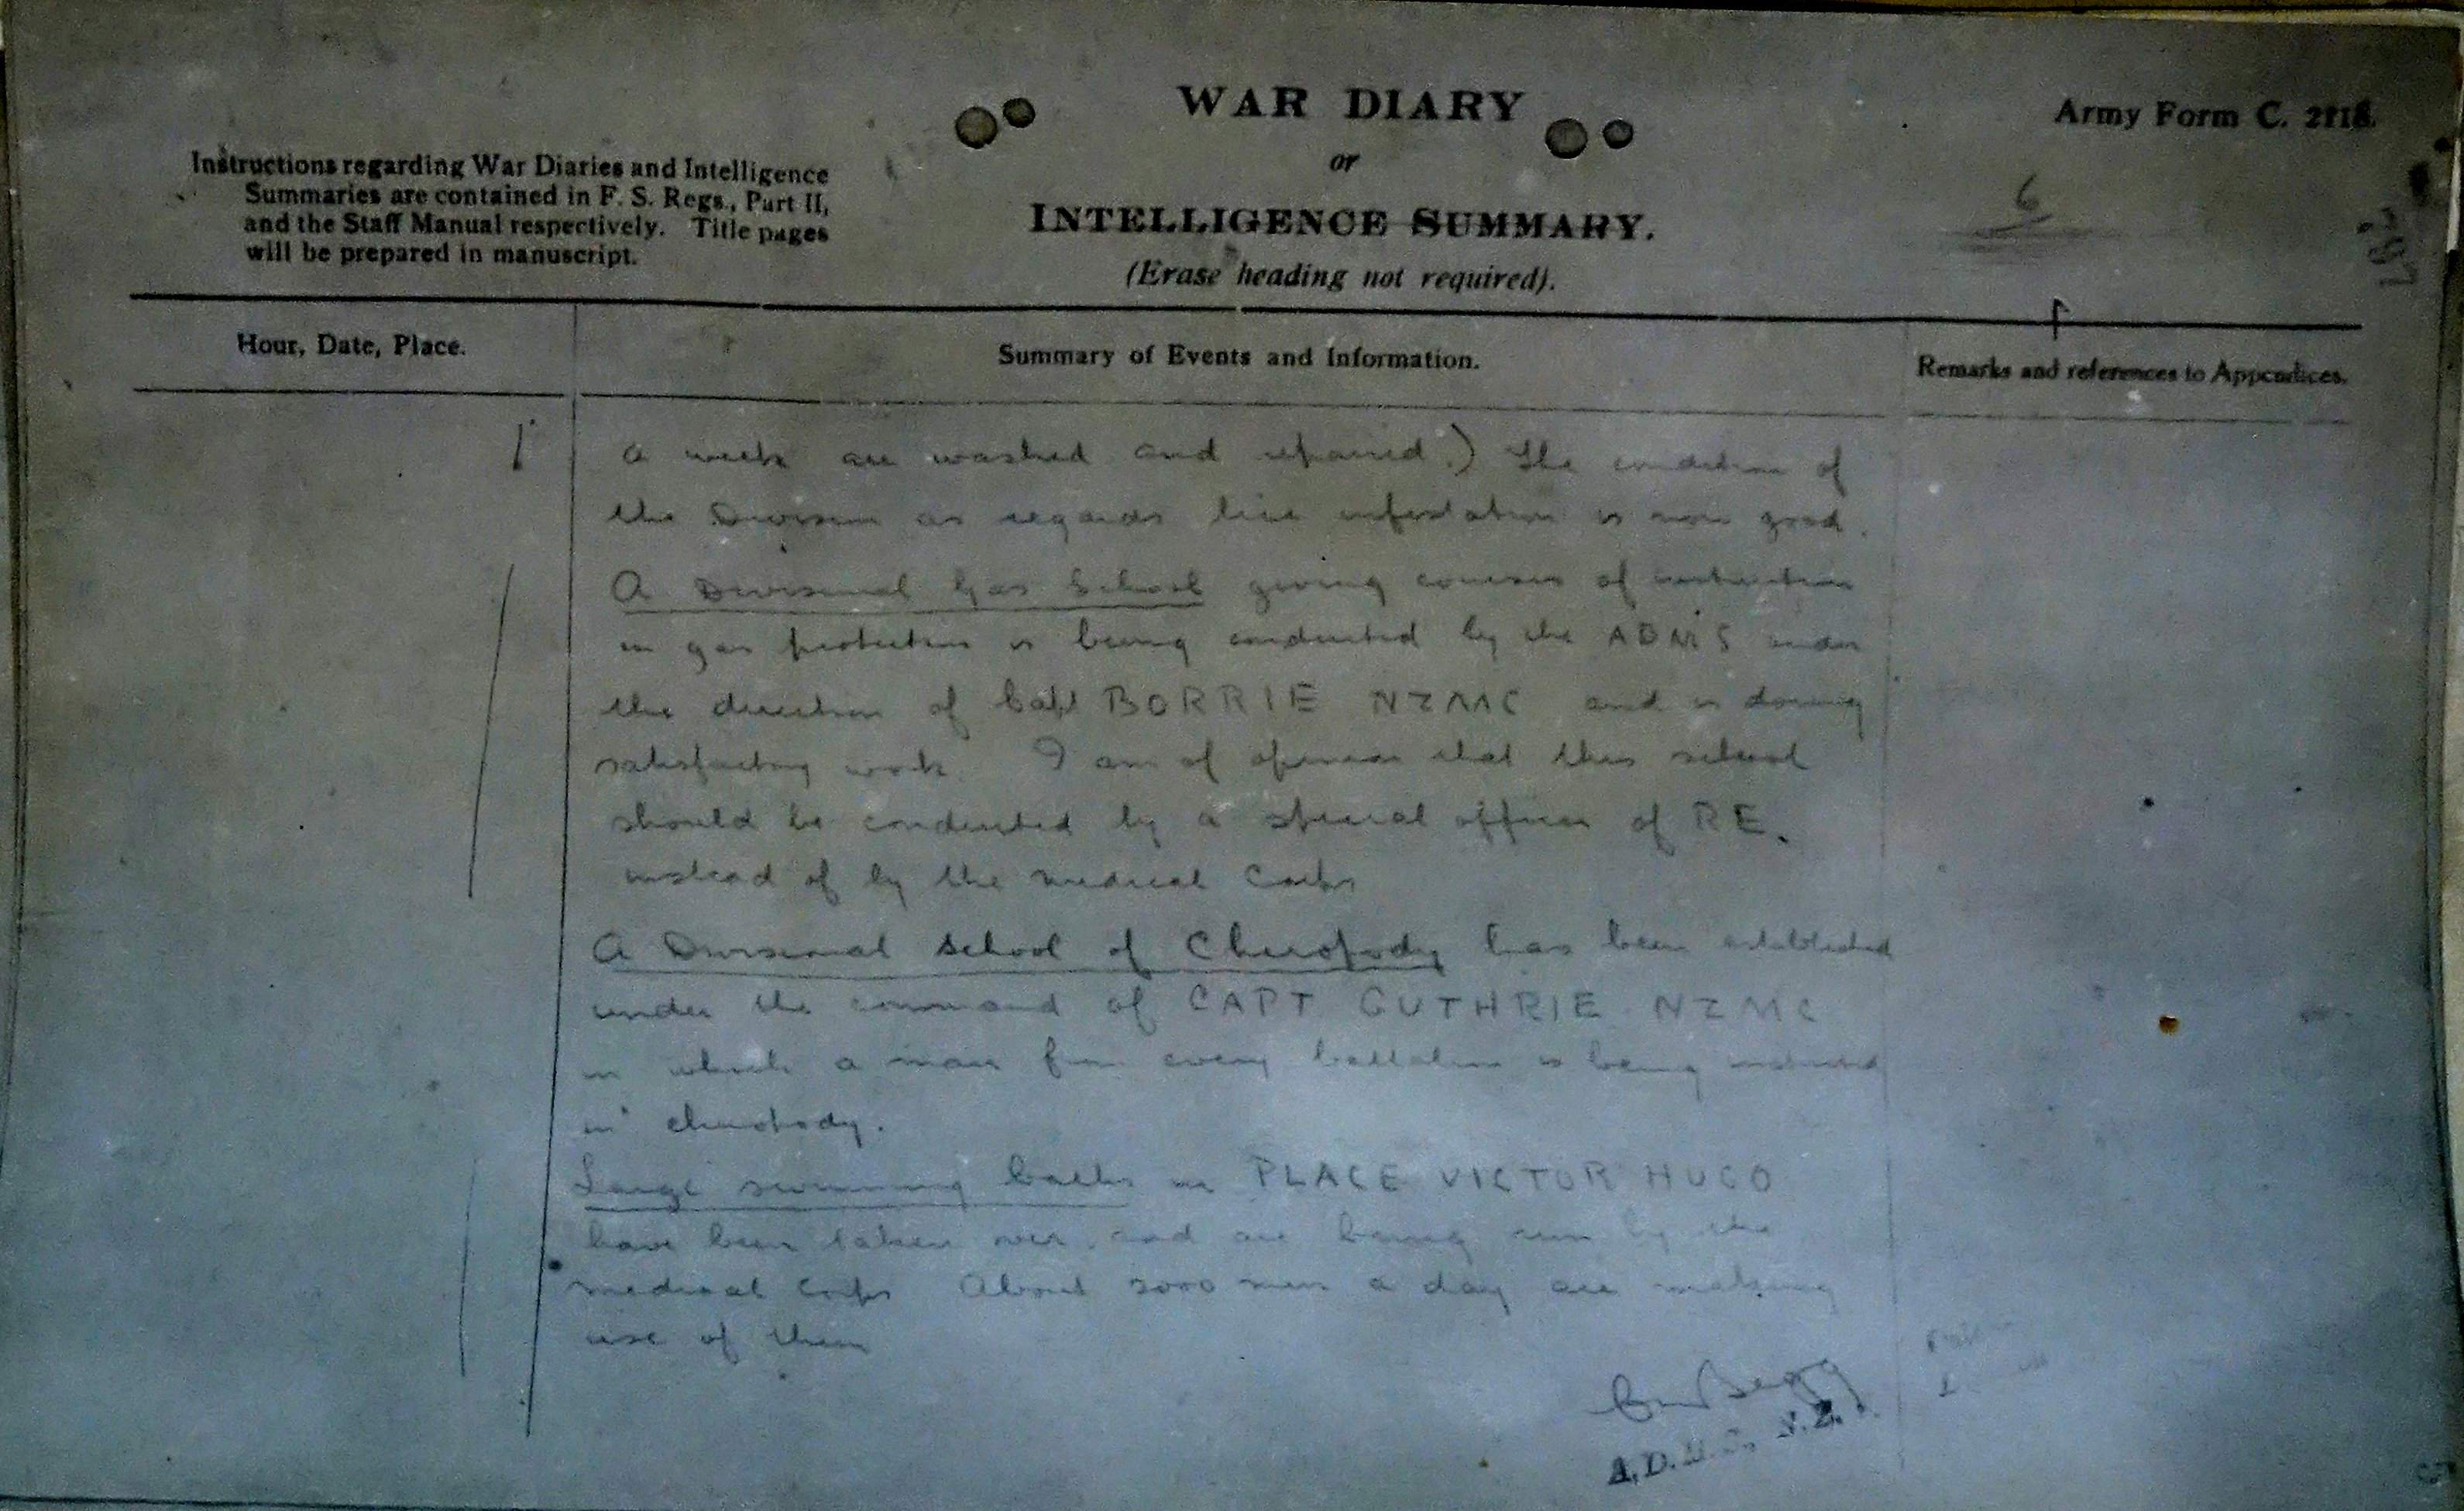 WAR DIARY
or
INTELLIGENCE SUMMARY.
(Erase heading not required).
Army Form C. 2118.
6
Instructions regarding War Diaries and Intelligence
Summaries are contained in F. S. Regs., Part II,
and the Staff Manual respectively. Title pages
will be prepared in manuscript.
Hour, Date, Place.
Summary of Events and Information.
Remarks and references to Appendices.
a week are washed and repaired.) The condition of
the Division as regards lice infestation is now good.
A Divisional Gas School giving courses of instruction
in gas protection is being conducted by the ADMS under
the direction of Capt BORRIE NZMC and is doing
satisfactory work. I am of opinion that this school
should be conducted by a special officer of RE.
instead of by the medical Corps
A Divisional School of Chiropody has been established
under the command of CAPT GUTHRIE NZMC
in which a man from every battalion is being instructed
in chiropody.
Large swimming baths in PLACE VICTOR HUGO
have been taken over and are being run by the
medical Corps About 2000 men a day are making
use of them
Begg
A.D.M.S. N.Z.